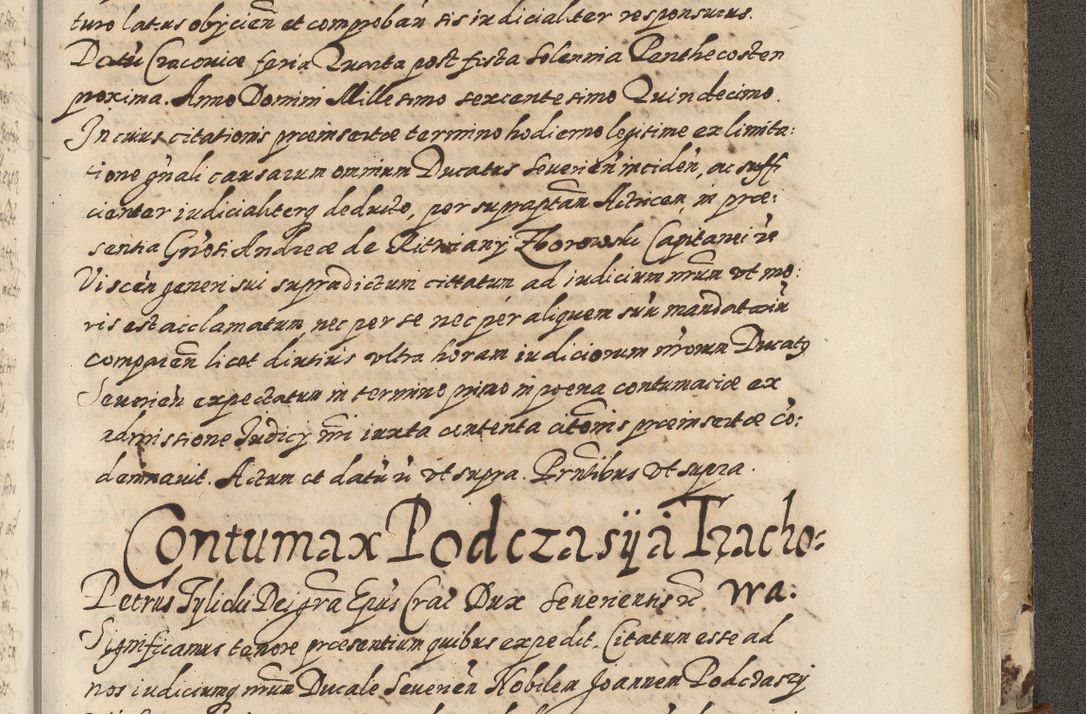 turo latius obijcien̄ et comproban̄ sis iudicialiter responsurus.
Datū Cracouiæ feria Quarta post festa solennia Penthecosten
proxima. Anno Domini Millesimo sexcentesimo Quindecimo.
In cuius citationis præinsertæ termino hodierno legitime ex limita:
tione gn̄ali causarum omnium Ducatus Seuerien̄ inciden̄, ac suffi
cienter iudicialiterq deducto, per supraptam̄ Actricem in præ:
sentia Gn̄osi Andreæ de Ritwiany Zborowski Capitanei et
Viscen̄ generi sui supradictum cittatum ad iudicium nr̄um vt mo:
ris est acclamatum, nec per se nec per aliquem suū mandatariū
comparen̄ licet diutius vltra horam iudiciorum nr̄orum Ducatq
Seuerien̄ expectatum in termino primo in poena contumaciæ ex
admissione Iudicij nr̄i iuxta contenta citōnis præinsertæ cō:
demnauit. Actum et datū ut supra. Prn̄tibus vt supra.
Contumax Podczasÿ à Trzacho:
wa.
Petrus Tylicki Dei gr̄a Ep̄us Crac Dux Seueriensis
Significamus tenore præsentium quibus expedit. Citatum esse ad
nos iudiciumq nr̄um Ducale Seuerien̄ Nobilem Joannem Podczaszy